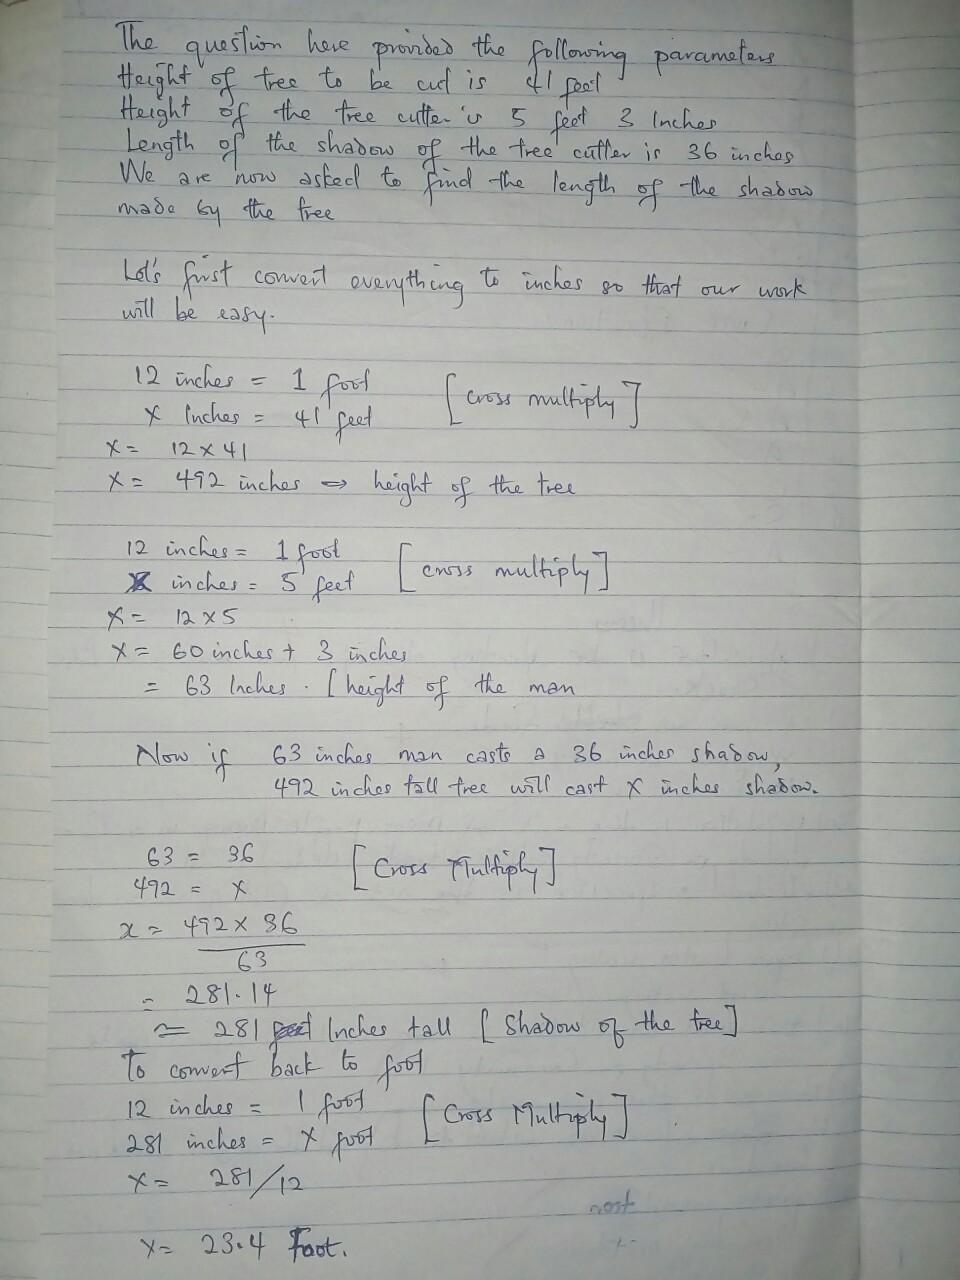 The question here provided the following parameters
Height of tree to be cut is 41 feet
Height of the tree cutter is 5 feet 3 Inches
Length of the shadow of the tree cutter is 36 inches
We are now asked to find the length of the shadow
made by the tree
Let's first convert everything to inches so that our work
will be easy.
12 inches = 1 foot [cross multiply]
x Inches = 41 feet
x = 12 x 41
x = 492 inches => height of the tree
12 inches = 1 foot [cross multiply]
x inches = 5 feet
x = 12 x 5
x = 60 inches + 3 inches
= 63 Inches. [height of the man
Now if 63 inches man casts a 36 inches shadow,
492 inches tall tree will cast x inches shadow.
63 = 36 [Cross Multiply]
492 = x
x = 492 x 36
63
= 281.14
≈ 281 Inches tall [Shadow of the tree]
To convert back to foot
12 inches = 1 foot [Cross Multiply]
281 inches = x foot
x = 281/12
x = 23.4 Foot.